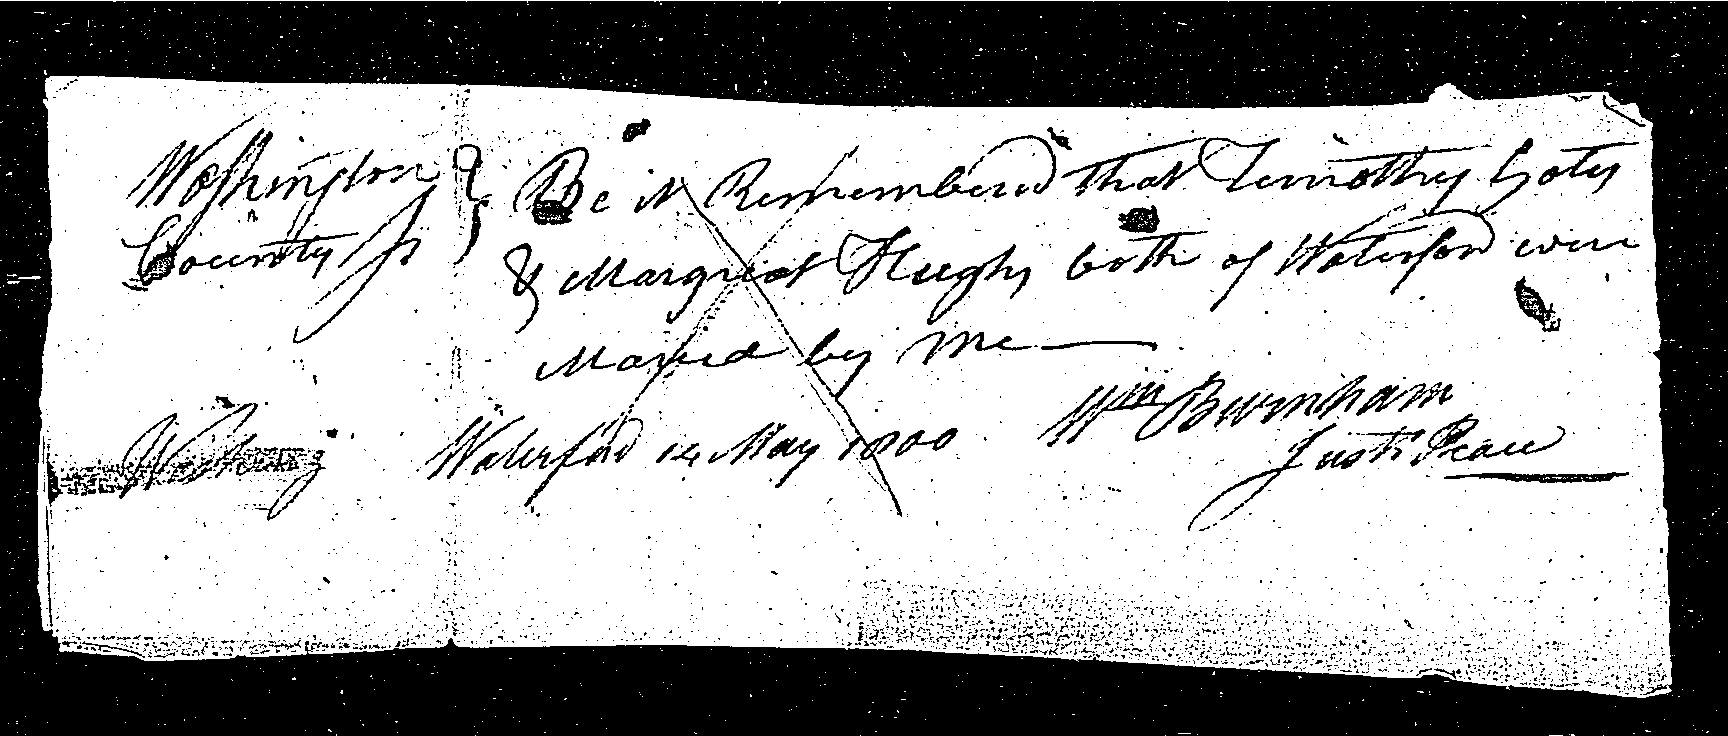 Washington } Be it Remembered that Timothy Goty
County Ss } & Margreat Hughy both of Waterford were
Maried by Me
Waterford 14 May 1800 Wm Burnham
Justs Peace